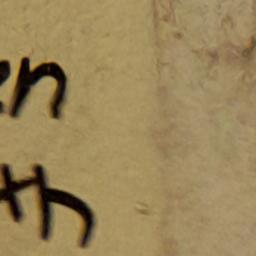 en
th